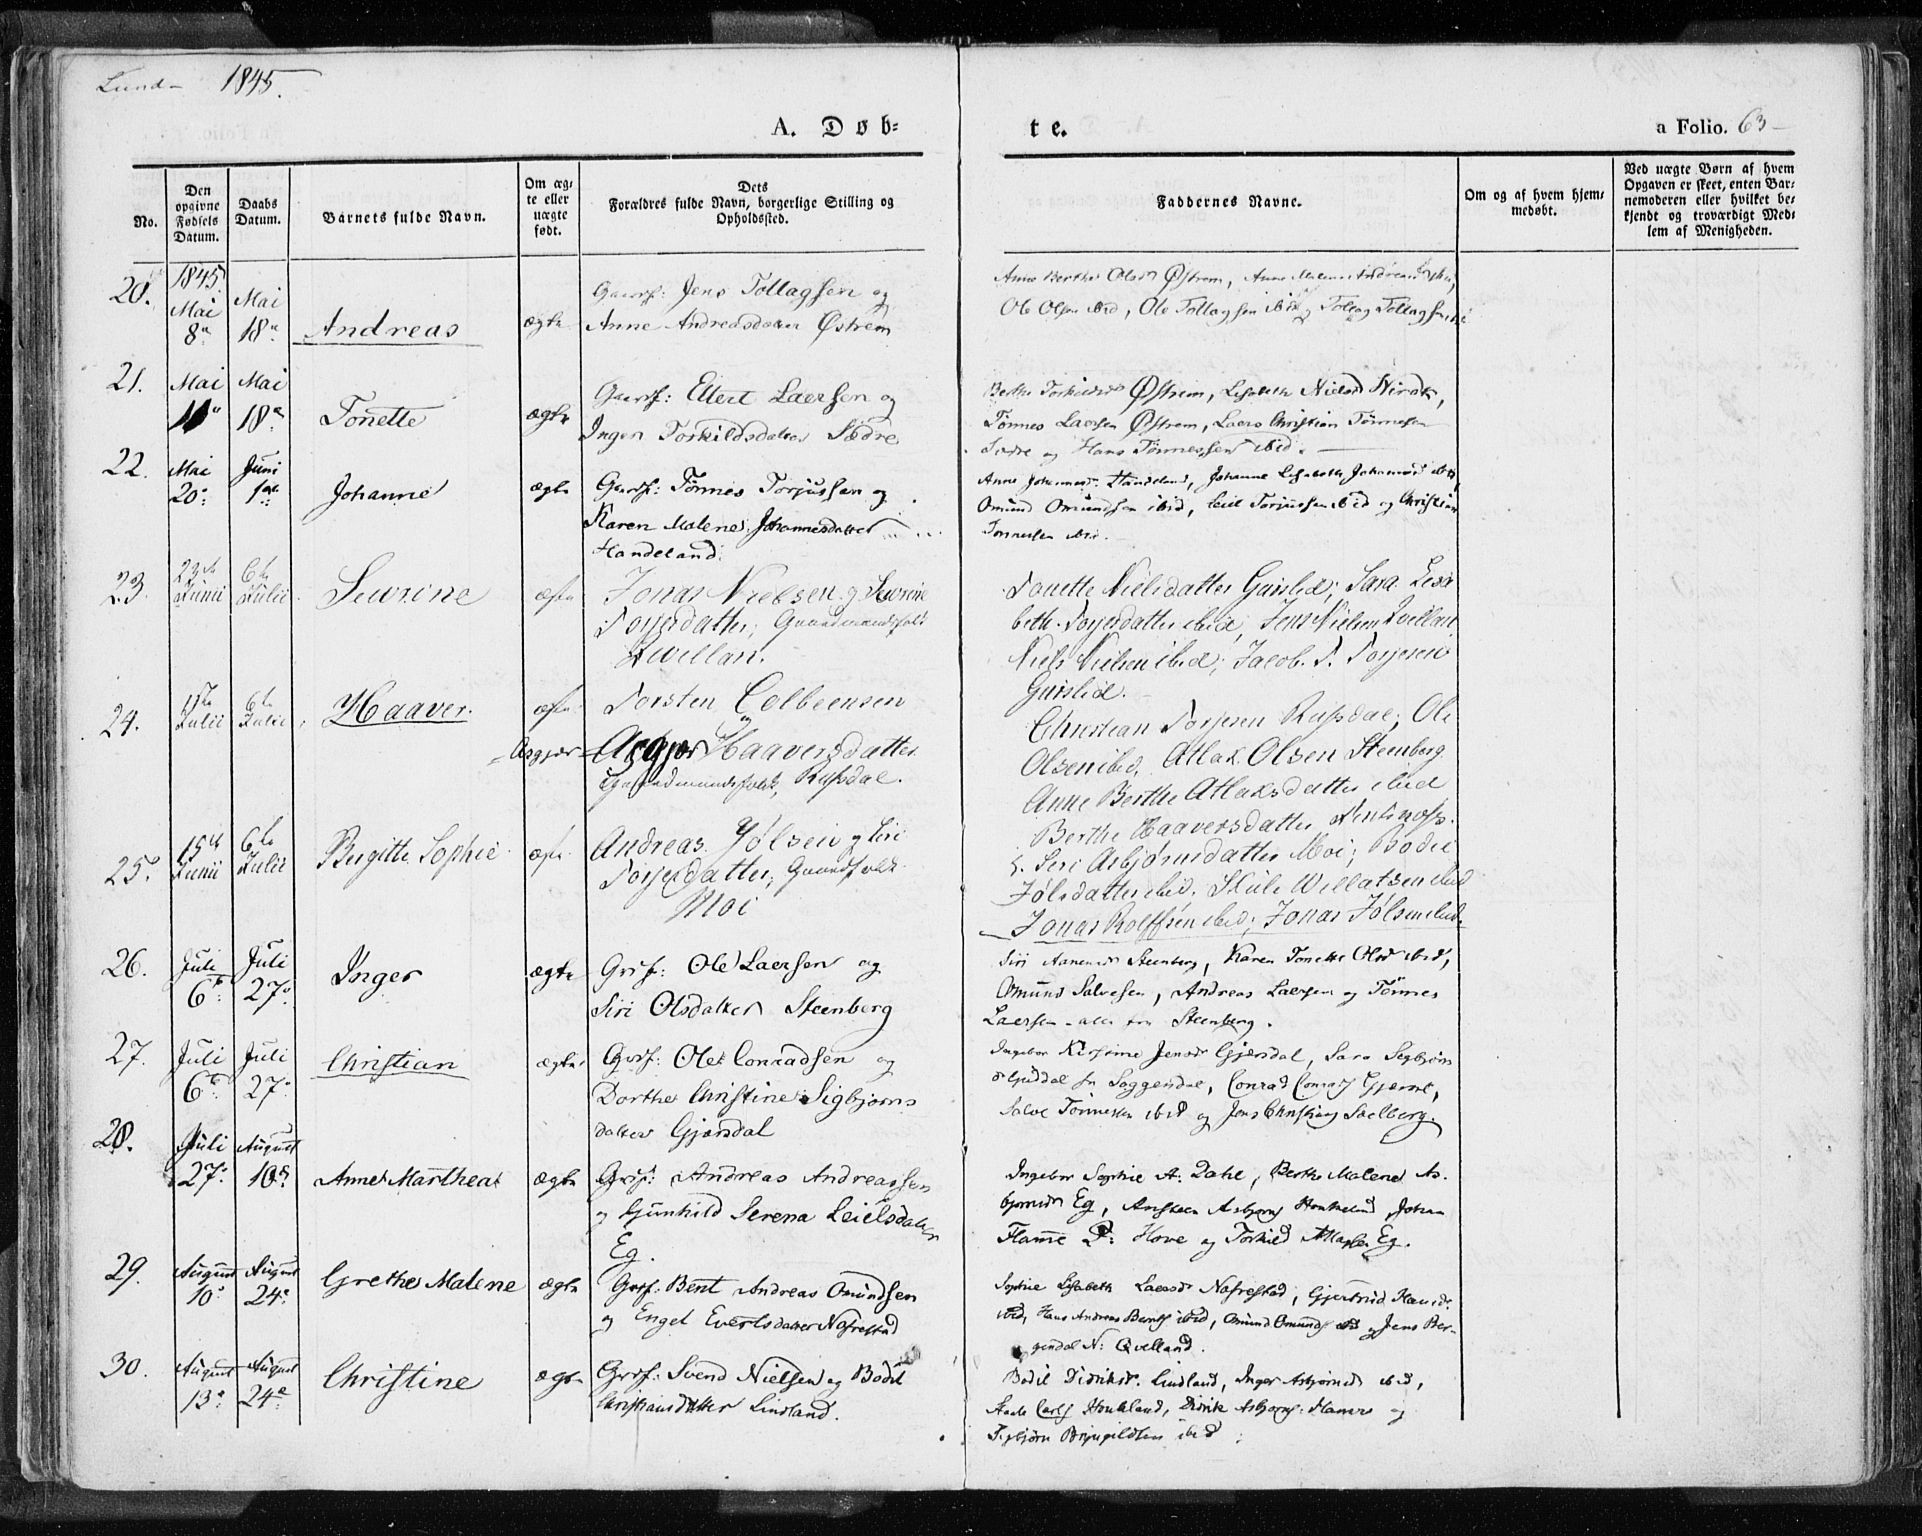 Lund 1845.
A. Døb=
te.
a Folio. 63
No.
Den opgivne Fødsels Datum.
Daabs Datum.
Barnets fulde Navn.
Om ægte eller uægte født.
Dets Forældres fulde Navn, borgerlige Stilling og Opholdssted.
Faddernes Navne.
Om og af hvem hjemmedøbt.
Ved uægte Børn af hvem Opgaven er skeet, enten Barnemoderen eller hvilket bekjendt og troværdigt Medlem af Menigheden.
20. 1845. Mai 8 Mai 18 Andreas ægte
Gaardf: Jens Tollagsen og
Anne Andreasdatter Østrem
Anne Berthe Olsd Østrem, Anne Malene
Ole Olsen ibid, Ole Tollagsen ibid og Tollag Tollagsen ibid
21. Mai Mai 18 Tonette ægte
Gaardf: Ellert Laersen og
Inger Torkildsdatter Sædre
Berthe Østrem, Lisabeth Nielsd
Tønnes Laersen Østrem, Laers Christian Tønnesen
Sædre og Hans Tønnessen ibid.
22. Mai 20 Juni 1 Johanne ægte
Gaardf: Tønnes Torjussen og
Karen Malene Johannesdatter
Handeland.
Anne Johannesd. Handeland, Johanne Lisabeth Johannesd ibid,
Omund Omundsen ibid, Leiel Torjussen ibid og Christian
Tønnessen ibid.
23. 23de Junii 6te Julii Sewrine ægte
Jonas Nielsen og Sewrine
Torjersdatter, Gaardmandsfolk
Qwellan.
Tonette Nielsdatter Gursled; Sara Lisa
beth Torjersdatter ibid, Jens Nielsen Qvellan
Niels Nielsen ibid; Jacob T. Torjersen
Gursled.
24. Julii 6te Julii Haaver. ægte
Torsten Colbeensen
og
Asgjær Asgjær Haaversdatter
Gaardmandsfolk, Rusdal.
Christian Torjesen Rusdal; Ole
Olsen ibid, Atlak Olsen Steenberg
Anne Berthe Atlaksdatter ibid
Berthe Haaversdatter
25. 15de Junii 6te Julii Birgitte Sophie ægte
Andreas Jølsen og Siri
Torjersdatter, Gaardfolk
Moi
Siri Asbjørnsdatter Moi; Bodil
Jølsdatter ibid. Skule Willatsen ibid
Jonas Rolffsen ibid; Jonas Jølsen ibid.
26. Juli 6 Juli 27 Inger ægte
Grdf: Ole Laersen og
Siri Olsdatter Steenberg
Siri Steenberg, Karen Tonette Olsd ibid,
Omund Salvesen, Andreas Laersen og Tønnes
Laersen alle fra Steenberg.
27. Juli 6 Juli 27 Christian ægte
Grdf: Ole Conradsen og
Dorthe Christine Sigbjørns
datter Gjærsdal
Ingebor Kirstine Jensd Gjærsdal, Sara Segbjørn
fra Soggendal, Conrad
Salve Tønnessen ibid og Jens Christian
28. Juli 27 August 10 Anne Marthea ægte
Grdf: Andreas Andreassen
og Gunhild Serena Leielsdatter
Eg.
Ingebor Sophie A: Dahl, Berthe Malene As-
bjørnsd Eg, Ansteen Asbjørns , Johan
P: Hove og Torkild Eg.
29. August 10 August 24 Grethe Malene ægte
Grdf: Bent Andreas Omundsen
og Engel Evertsdatter Nafrestad
Sophie Lisabeth Laersd Nafrestad, Gjertrud Hansd.
ibid, Hans Andreas Bents ibid, Omund Omunds ibid og Jens Ber-
gendal N: Qvelland.
30. August 13 August 24 Christine ægte
Grdf: Svend Nielsen og Bodil
Christiansdatter Lindland.
Bodil Didriksd. Lindland, Inger Asbjørnsd ibid,
Didrik Asbjørns. og
ibid